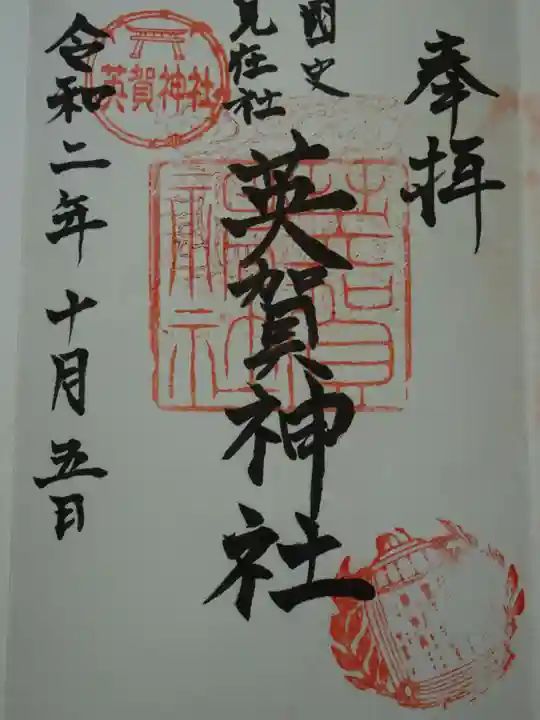 奉拝
國史
見在社
英賀神社
令和二年十月五日
英賀神社